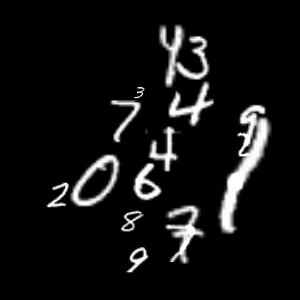 43
3
7 4 9
4 2
2 0 6 1
8 7
9 7